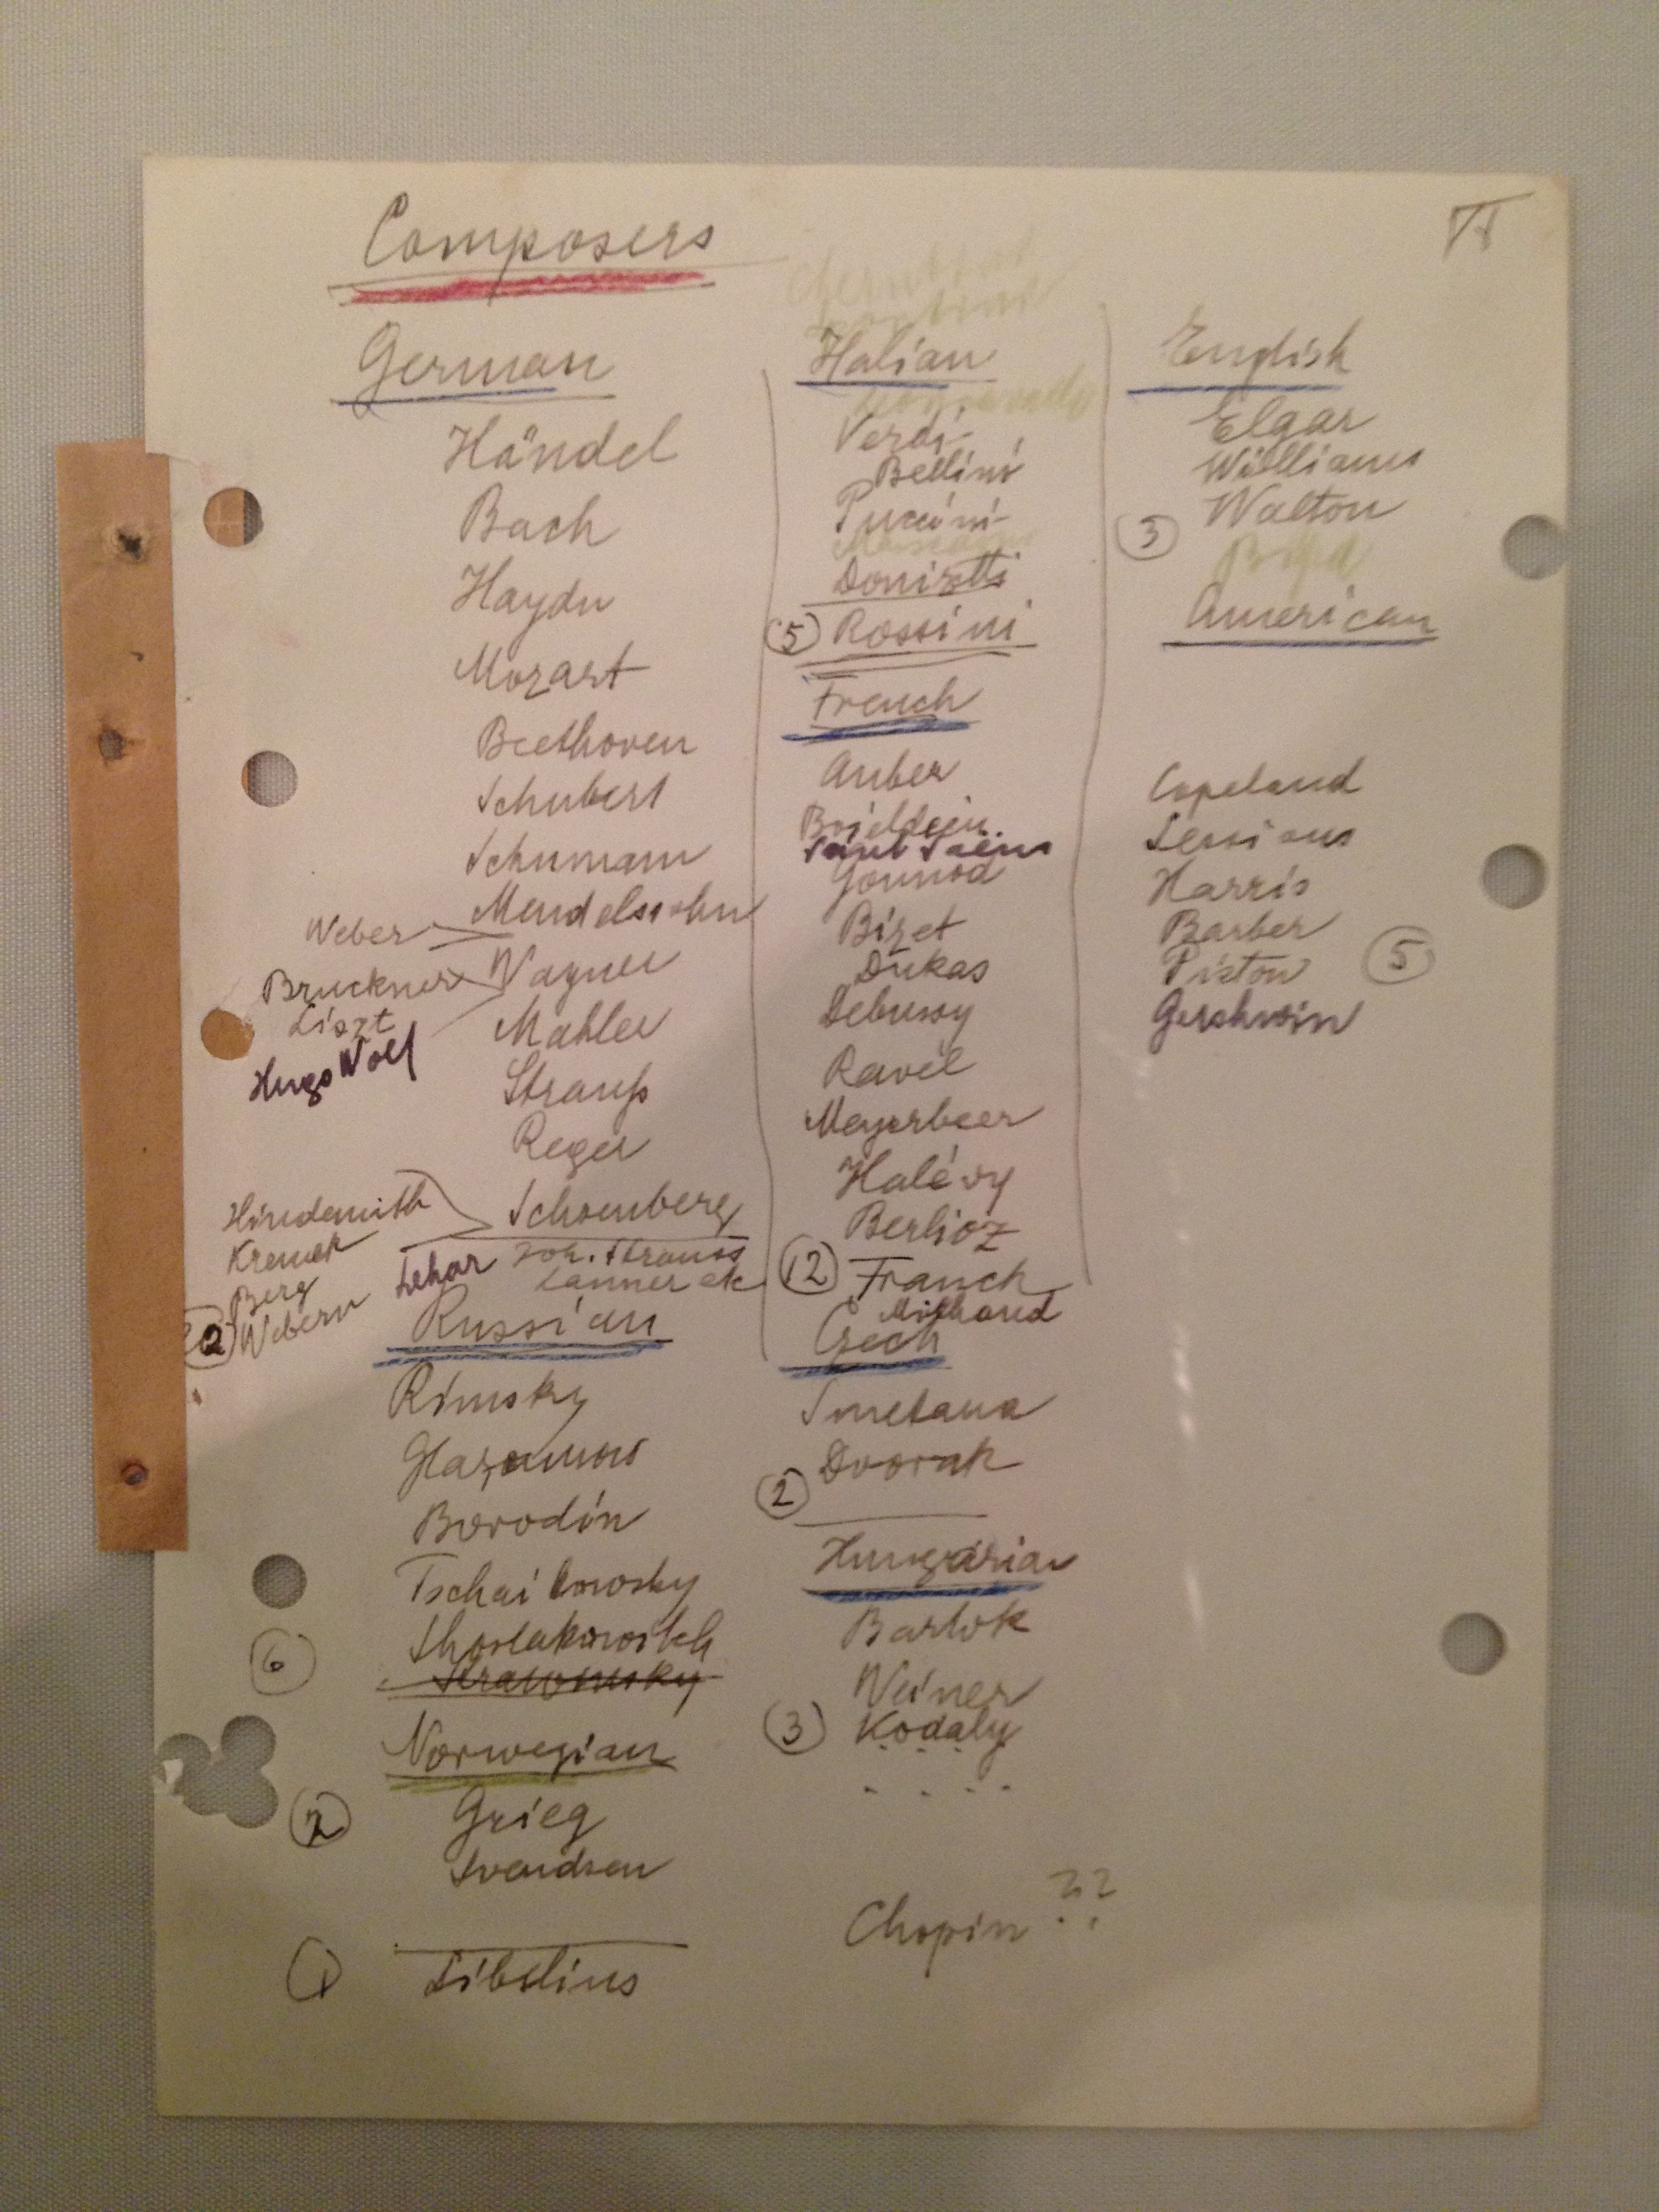 Composers
German
Händel
Bach
Haydn
Mozart
Beethoven
Schubert
Schumann
Mendelssohn
Weber
Wagner
Bruckner
Liszt
Hugo Wolf
Mahler
Strauß
Reger
Schoenberg
Hindemith
Krenek
Berg
Webern
Lehar Joh. Strauss
Lanner etc
Russian
Rimsky
Glazounow
Borodin
Tschaikowsky
Shostakowitch
Strawinsky
6
Norwegian
2 Grieg
Svendsen
1 Sibelius
Italian
Verdi
Bellini
Puccini
Donizetti
5 Rossini
French
Auber
Boieldieu
Saint Saëns
Gounod
Bizet
Dukas
Debussy
Ravel
Meyerbeer
Halévy
Berlioz
12 Franck
Milhaud
Czech
Smetana
Dvorak
2
Hungarian
Bartok
Weiner
3 Kodaly
Chopin ??
English
Elgar
Williams
Walton
3
American
Copeland
Sessions
Harris
Barber
Piston
5
Gershwin